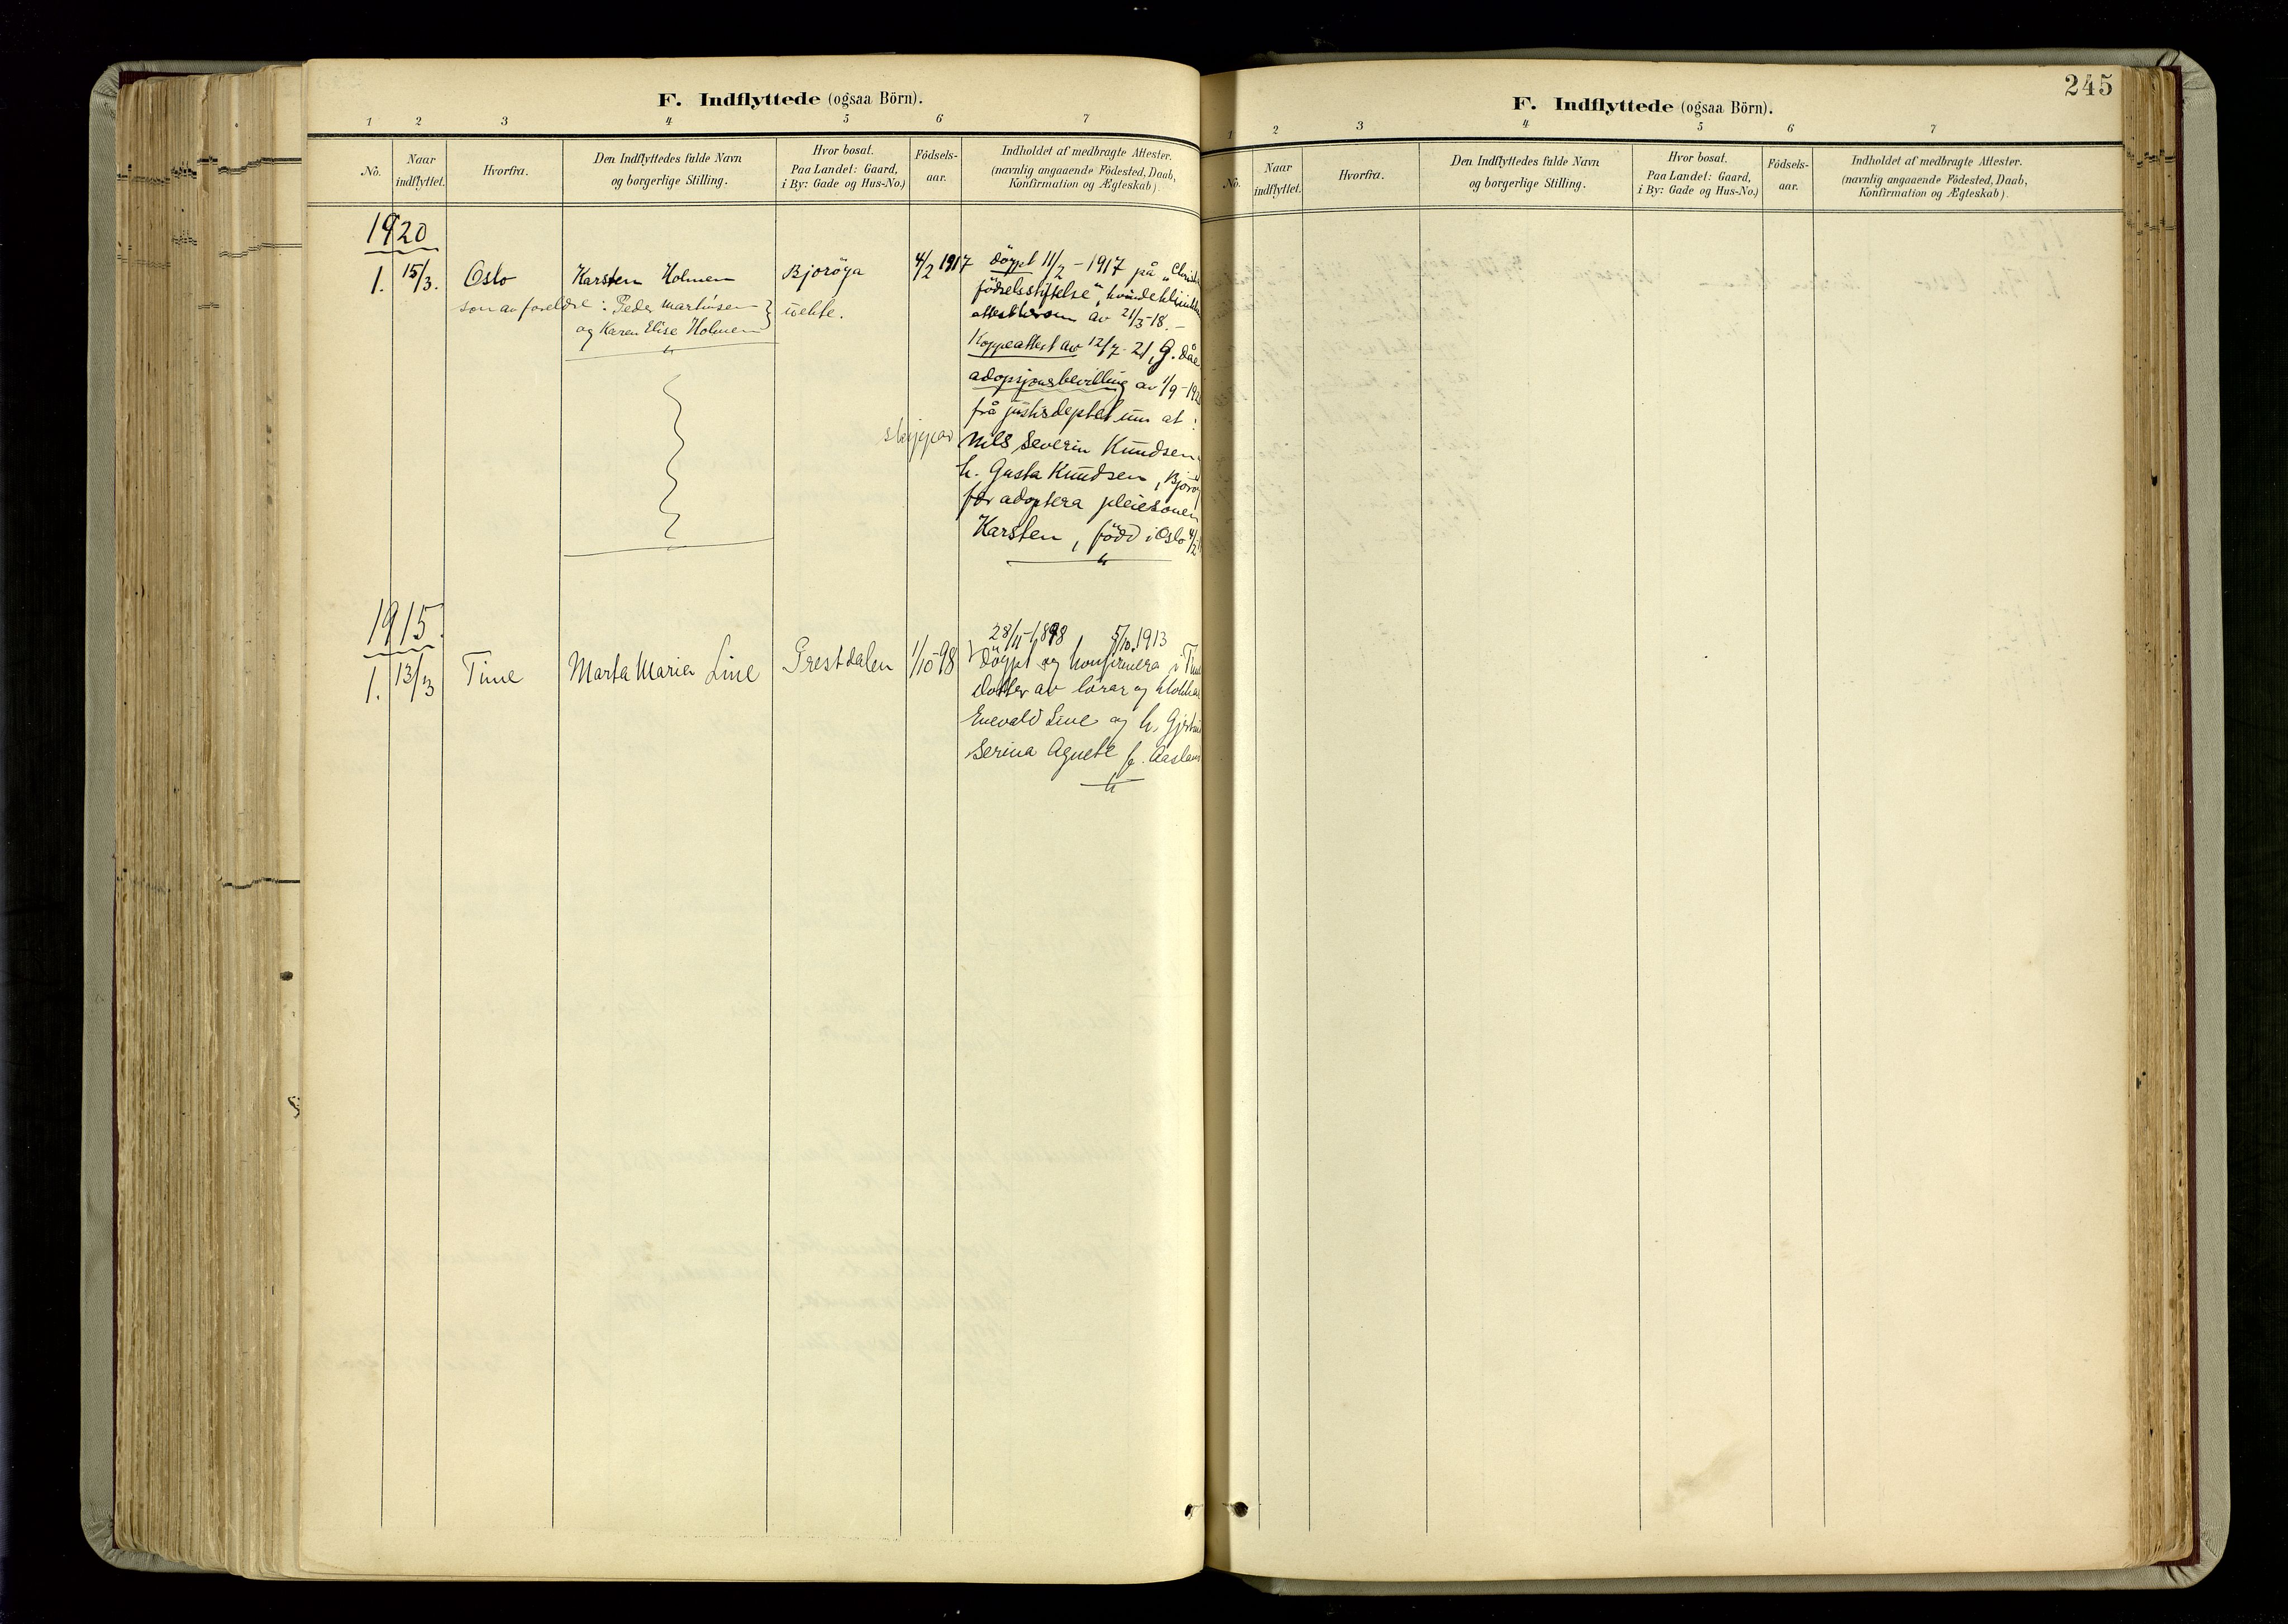 F. Indflyttede (ogsaa Börn).
1 2 3 4 5 6 7
No. Naar indflyttet. Hvorfra. Den Indflyttedes fulde Navn og borgerlige Stilling. Hvor bosat. Paa Landet: Gaard, i By: Gade og Hus-No.) Födsels-aar. Indholdet af medbragte Attester. (navnlig angaaende Födested, Daab, Konfirmation og Ægteskab).
1920
1. 15/3. Oslo Karsten Holmen Bjoröya 4/2 1917 döypt 11/2 - 1917 på „Christi
son av foreldre: Peder Martinsen födselsstiftelse“,
og Karen Elise Holmen av 21/3-18. -
Koppeattest av 12/7-21, G.
adopsjonsbevilling av 1/9-192
frå justisdeptet um at:
skippar Nils Severin Knudsen
h. Gusta Knudsen, Bjorö
får adoptera pleiesonen
Karsten, född i Oslo 4/2
1915.
28/11-1898 5/10.1913
1. 13/3 Time Marta Marie Line Prestdalen 1/10-98 Döypt og konfirmera i Time
Dotter av lärar og klokkar
Enevald Line og h. Gjertine
Serina Agnete f. Aasland
245
F. Indflyttede (ogsaa Börn).
1 2 3 4 5 6 7
No. Naar indflyttet. Hvorfra. Den Indflyttedes fulde Navn og borgerlige Stilling. Hvor bosat. Paa Landet: Gaard, i By: Gade og Hus-No.) Födsels-aar. Indholdet af medbragte Attester. (navnlig angaaende Födested, Daab, Konfirmation og Ægteskab).